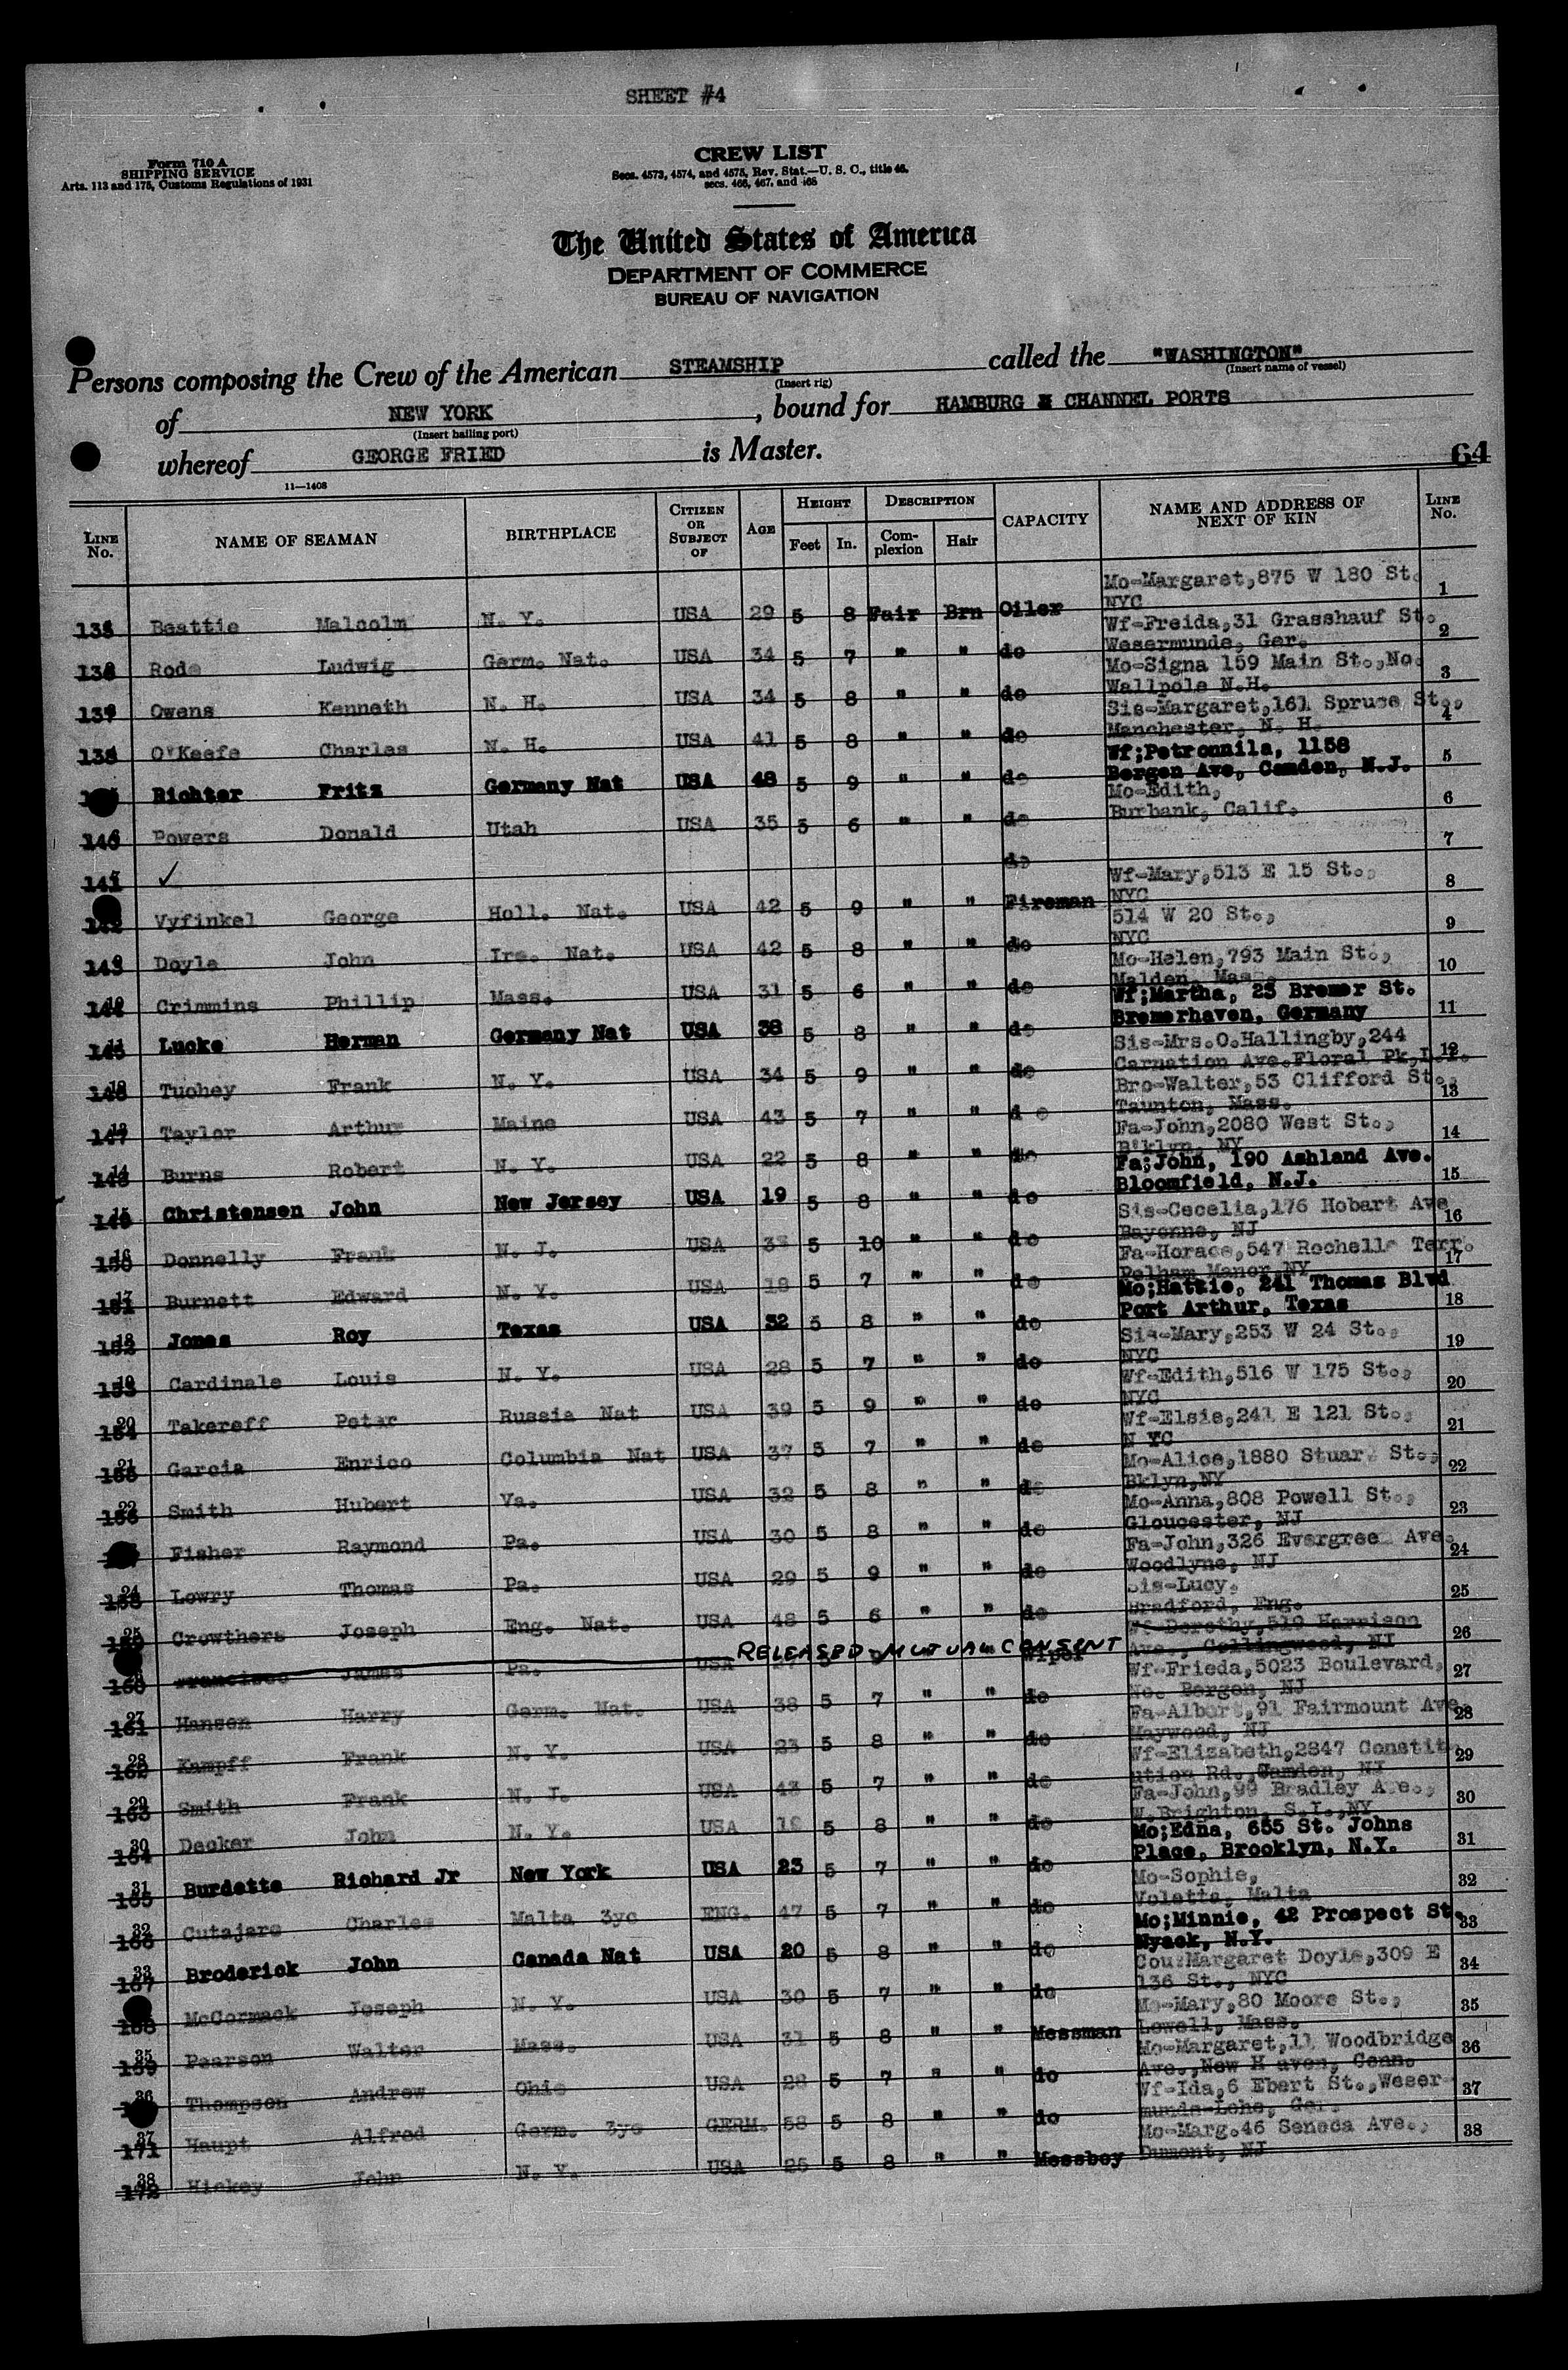 SHEET #4
Form 710 A
SHIPPING SERVICE
Arts. 113 and 175, Customs Regulations of 1931
CREW LIST
Secs. 4573, 4574, and 4575, Rev. Stat.—U. S. C., title 46,
secs. 466, 467, and 468
The United States of America
DEPARTMENT OF COMMERCE
BUREAU OF NAVIGATION
Persons composing the Crew of the American STEAMSHIP called the "WASHINGTON"
(Insert rig) (Insert name of vessel)
of NEW YORK, bound for HAMBURG & CHANNEL PORTS
(Insert hailing port)
whereof GEORGE FRIED is Master.
64
11—1408
LINE No. NAME OF SEAMAN BIRTHPLACE CITIZEN OR SUBJECT OF AGE HEIGHT Feet In. DESCRIPTION Complexion Hair CAPACITY NAME AND ADDRESS OF NEXT OF KIN LINE No.
135 Beattie Malcolm N. Y. USA 29 5 8 Fair Brn Oiler Mo-Margaret,875 W 180 St. NYC 1
136 Rode Ludwig Germ. Nat. USA 34 5 7 " " do Wf-Freida,31 Grasshauf St. Wesermunde, Ger. 2
137 Owens Kenneth N. H. USA 34 5 8 " " do Mo-Signa 159 Main St.,No. Wallpole N.H. 3
138 O'Keefe Charles N. H. USA 41 5 8 " " do Sis-Margaret,161 Spruce St., Manchester, N. H. 4
Richter Fritz Germany Nat USA 48 5 9 " " do Wf;Petronnila, 1158 Bergen Ave, Camden, N.J. 5
140 Powers Donald Utah USA 35 5 6 " " do Mo-Edith, Burbank, Calif. 6
141 ✓ do 7
142 Vyfinkel George Holl. Nat. USA 42 5 9 " " Fireman Wf-Mary,513 E 15 St., NYC 8
143 Doyle John Ire. Nat. USA 42 5 8 " " do 514 W 20 St., NYC 9
144 Crimmins Phillip Mass. USA 31 5 6 " " do Mo-Helen,793 Main St., Malden, Mass. 10
145 Lucke Herman Germany Nat USA 38 5 8 " " do Wf;Martha, 25 Bremer St. Bremerhaven, Germany 11
146 Tuohey Frank N. Y. USA 34 5 9 " " do Sis-Mrs.O.Hallingby,244 Carnation Ave.Floral Pk,L.I. 12
147 Taylor Arthur Maine USA 43 5 7 " " do Bro-Walter,53 Clifford St., Taunton, Mass. 13
148 Burns Robert N. Y. USA 22 5 8 " " do Fa-John,2080 West St., B'klyn, NY 14
149 Christensen John New Jersey USA 19 5 8 " " do Fa;John, 190 Ashland Ave. Bloomfield, N.J. 15
150 Donnelly Frank N. J. USA 5 10 " " do Sis-Cecelia,176 Hobart Ave Bayonne, NJ 16
151 Burnett Edward N. Y. USA 18 5 7 " " do Fa-Horace,547 Rochelle Terr. Pelham Manor,NY 17
152 Jones Roy Texas USA 32 5 8 " " do Mo;Hattie, 241 Thomas Blvd Port Arthur, Texas 18
153 Cardinale Louis N. Y. USA 28 5 7 " " do Sis-Mary,253 W 24 St., NYC 19
154 Takereff Peter Russia Nat USA 39 5 9 " " do Wf-Edith,516 W 175 St., NYC 20
155 Garcia Enrico Columbia Nat USA 37 5 7 " " do Wf-Elsie,241 E 121 St., N YC 21
156 Smith Hubert Va. USA 32 5 8 " " do Mo-Alice,1880 Stuart St., Bklyn,NY 22
Fisher Raymond Pa. USA 30 5 8 " " do Mo-Anna,808 Powell St., Gloucester, NJ 23
158 Lowry Thomas Pa. USA 29 5 9 " " do Fa-John,326 Evergreen Ave. Woodlyne, NJ 24
159 Crowthers Joseph Eng. Nat. USA 48 5 6 " " do Sis-Lucy. Bradford, Eng. 25
160 Francisco James Pa. USA RELEASED - MUTUAL CONSENT Wiper Wf-Dorothy,519 Harrison Ave., Collingwood, NJ 26
161 Hansen Harry Germ. Nat. USA 38 5 7 " " do Wf-Frieda,5023 Boulevard, No. Bergen, NJ 27
162 Kampff Frank N. Y. USA 23 5 8 " " do Fa-Albert,91 Fairmount Ave. Maywood, NJ 28
163 Smith Frank N. J. USA 43 5 7 " " do Wf-Elizabeth,2847 Constitution Rd.,Camden, NJ 29
164 Decker John N. Y. USA 5 8 " " do Fa-John,99 Bradley Ave., W.Brighton, S.I.,NY 30
165 Burdette Richard Jr New York USA 23 5 7 " " do Mo;Edna, 655 St. Johns Place, Brooklyn, N.Y. 31
166 Cutajare Charles Malta 3yc ENG. 47 5 7 " " do Mo-Sophie, Voletta, Malta 32
167 Broderick John Canada Nat USA 20 5 8 " " do Mo;Minnie, 42 Prospect St. Nyack, N.Y. 33
168 McCormack Joseph N. Y. USA 30 5 7 " " do Cou:Margaret Doyle,309 E 136 St., NYC 34
169 Pearson Walter Mass. USA 31 5 8 " " Messman Mo-Mary,80 Moore St., Lowell, Mass. 35
Thompson Andrew Ohio USA 28 5 7 " " do Mo-Margaret,11 Woodbridge Ave.,New H aven, Conn. 36
171 Haupt Alfred Germ. 3yc GERM. 58 5 8 " " do Wf-Ida,6 Ebert St.,Wesermunde-Lehe, Ger. 37
172 Hickey John N. Y. USA 25 5 8 " " Messboy Mo-Marg.46 Seneca Ave., Dumont, NJ 38